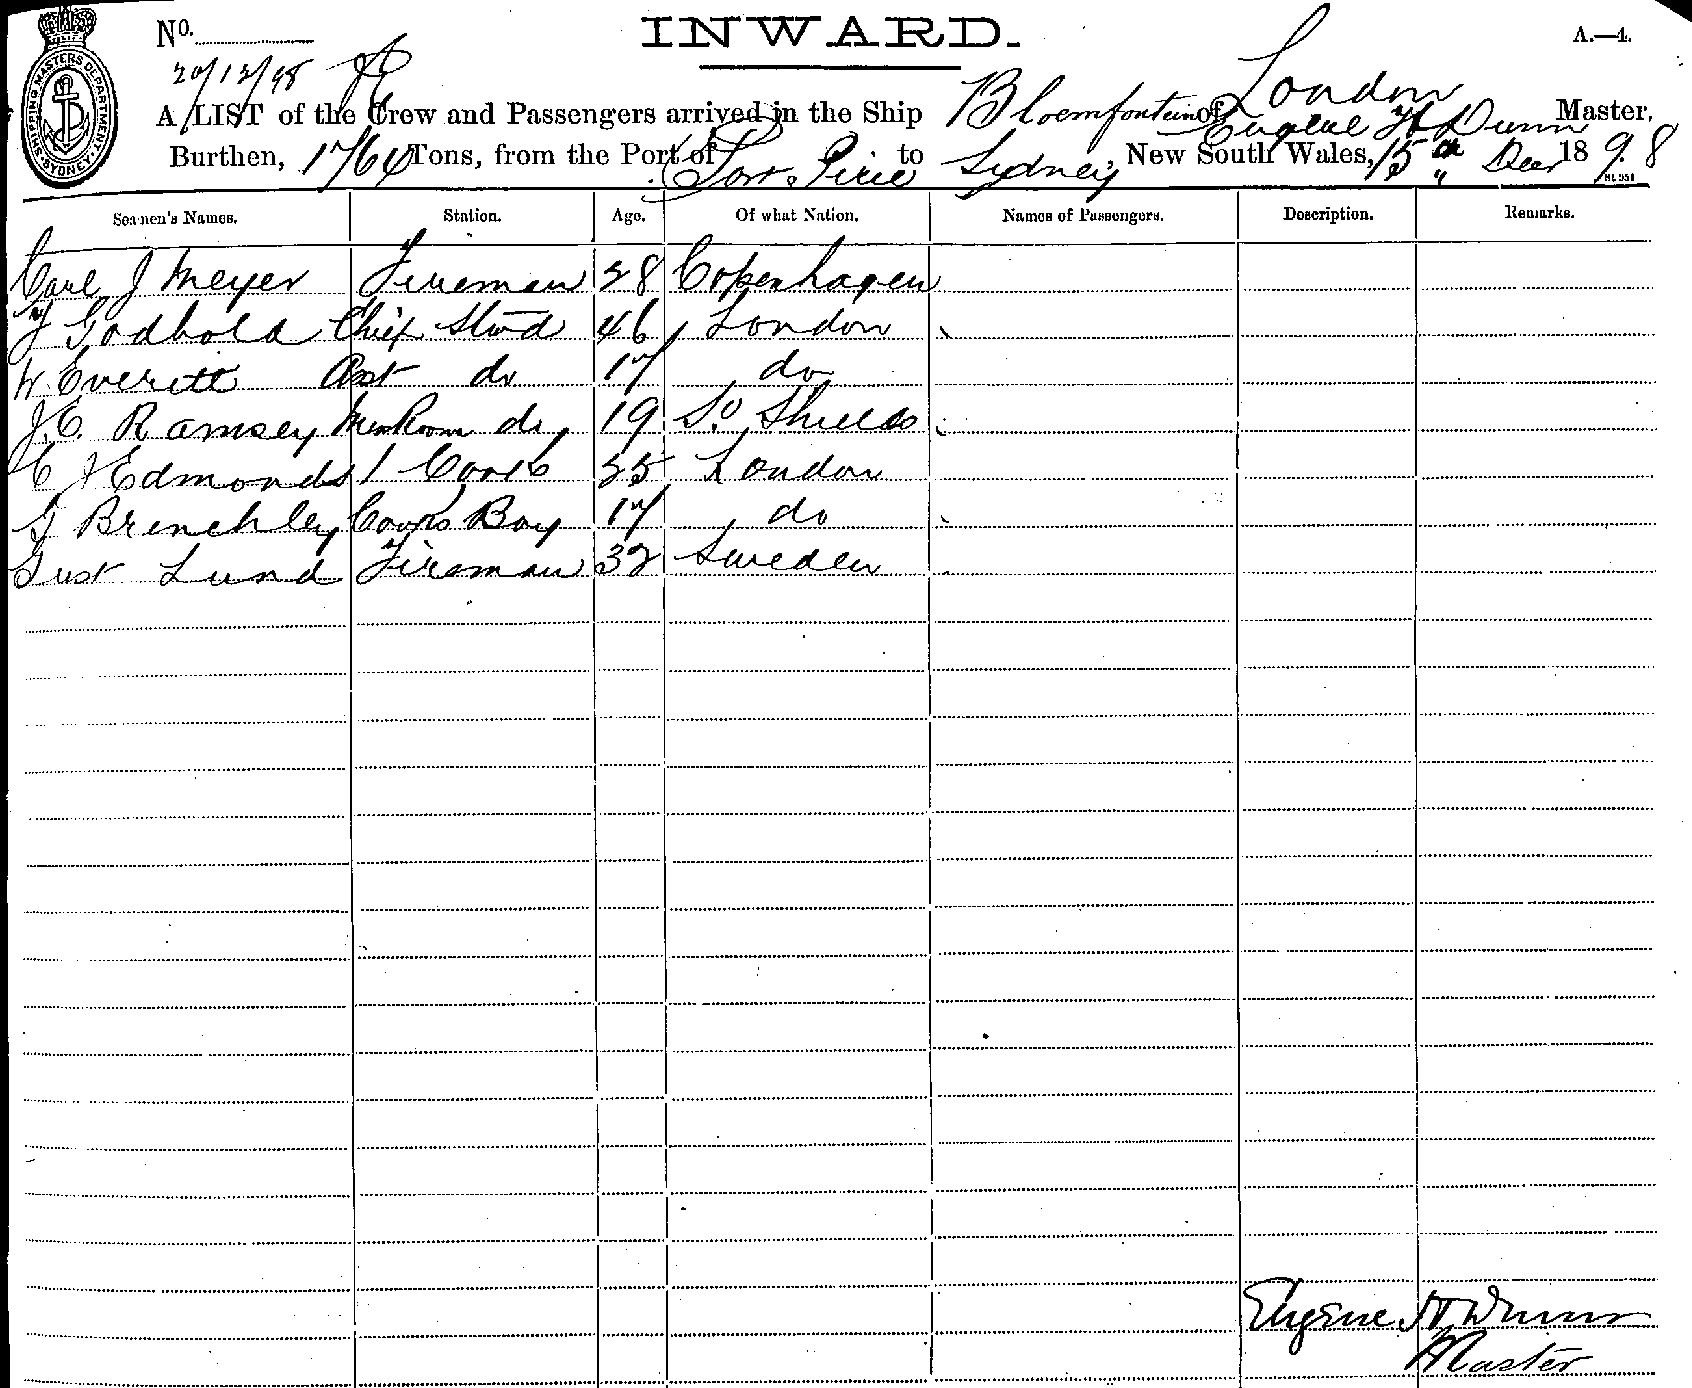 No. A.—4.
INWARD.
20/12/98
A LIST of the Crew and Passengers arrived in the Ship Bloemfontein of London Eugene H Dunn Master,
Burthen, 1764 Tons, from the Port of Port Pirie to Sydney, New South Wales, 15th Dec 1898
Seamen's Names. Station. Age. Of what Nation. Names of Passengers. Description. Remarks.
Carl J Meyer Fireman 28 Copenhagen
J Godbold Chief Stwd 46 London
W. Everitt Asst do 17 do
J.C. Ramsey MessRoom do 19 So Shields
C J Edmonds 1 Cook 25 London
G Brenchley Cooks Boy 17 do
Gust Lund Fireman 32 Sweden
Eugene H Dunn
Master
SHIPPING MASTERS DEPARTMENT SYDNEY